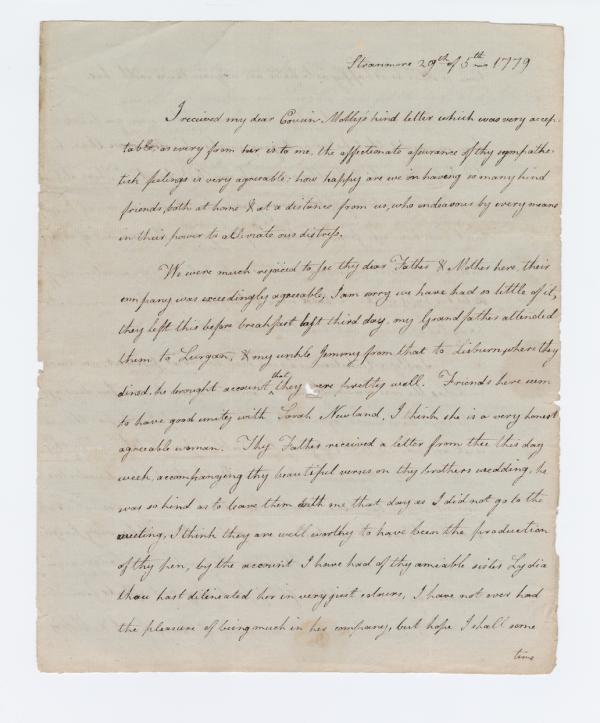 Stranmore 29th of 5th 1779
I received my dear Cousin Molly's kind letter which was very accep-
table, as every from her is to me, the affectionate assurance of thy sympathe-
tick feelings is very agreeable: how happy are we in having so many kind
friends, both at home & at a distance from us, who endeavour by every means
in their power to alleviate our distress.
We were much rejoiced to see thy dear Father & Mother here, their
company was exceedingly agreeable, I am sorry we have had so little of it,
they left this before breakfast last third day, my Grandfather attended
them to Lurgan, & my unkle Jemmy from that to Lisburn, where they
dined, he brought account that they were pretty well. Friends here seem
to have good unity with Sarah Newland, I think she is a very honest
agreeable woman. Thy Father received a letter from thee this day
week, accompanying thy beautiful verses on thy brothers wedding, he
was so kind as to leave them with me, that day as I did not go to the
meeting, I think they are well worthy to have been the production
of thy pen, by the account I have had of thy amiable sister Lydia
thou hast delineated her in very just colours, I have not ever had
the pleasure of being much in her company, but hope I shall some
time